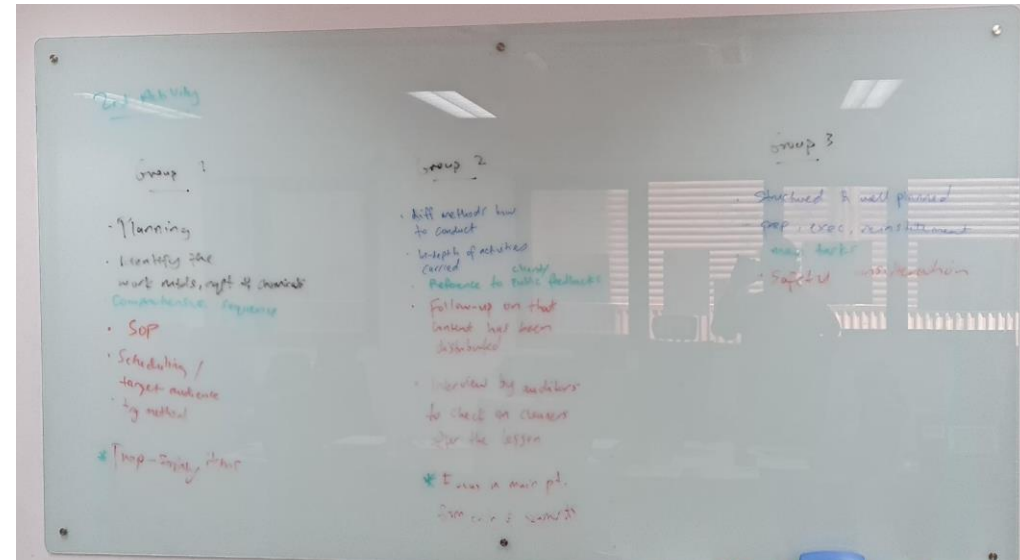 2nd Activity
Group 1
- Planning
· Identify the
work
Comprehensive sequence
· SOP
· Scheduling /
target audience
· method
Group 2
· diff methods how
to conduct
· In-depth of activities
carried
clients
· Reference to public feedbacks
· Follow-up on that
content has been
distributed
· Interview by auditors
to check on cleaners
after the lesson
* main pt.
Group 3
· Structured & well planned
- prep, exec, reinstatement
tasks
· Safety consideration